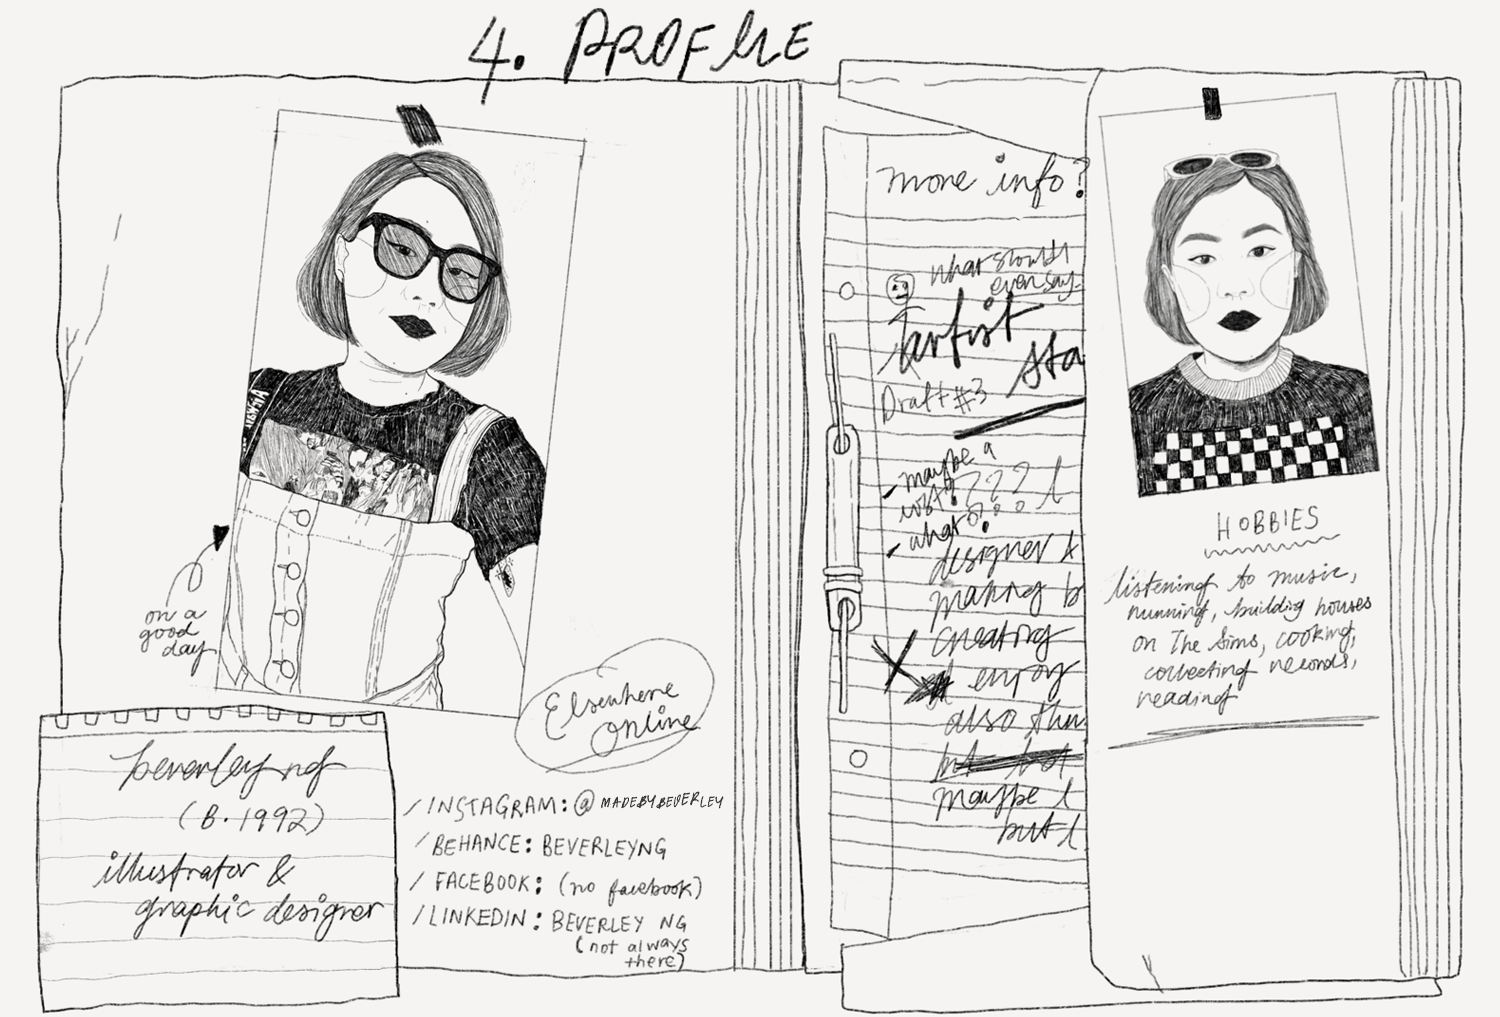 4. PROFILE
on a
good
day
beverley ng
(B. 1992)
illustrator &
graphic designer
Elsewhere
online
/ INSTAGRAM: @MADEBYBEVERLEY
/ BEHANCE: BEVERLEYNG
/ FACEBOOK: (no facebook)
/ LINKEDIN: BEVERLEY NG
(not always
there)
more info?
what should I
even say
artist
sta
Draft #3
- maybe a
???? I
- what
designer &
making b
creating
enjoy
also thin
maybe I
but I
HOBBIES
listening to music,
running, building houses
on The Sims, cooking,
collecting records,
reading